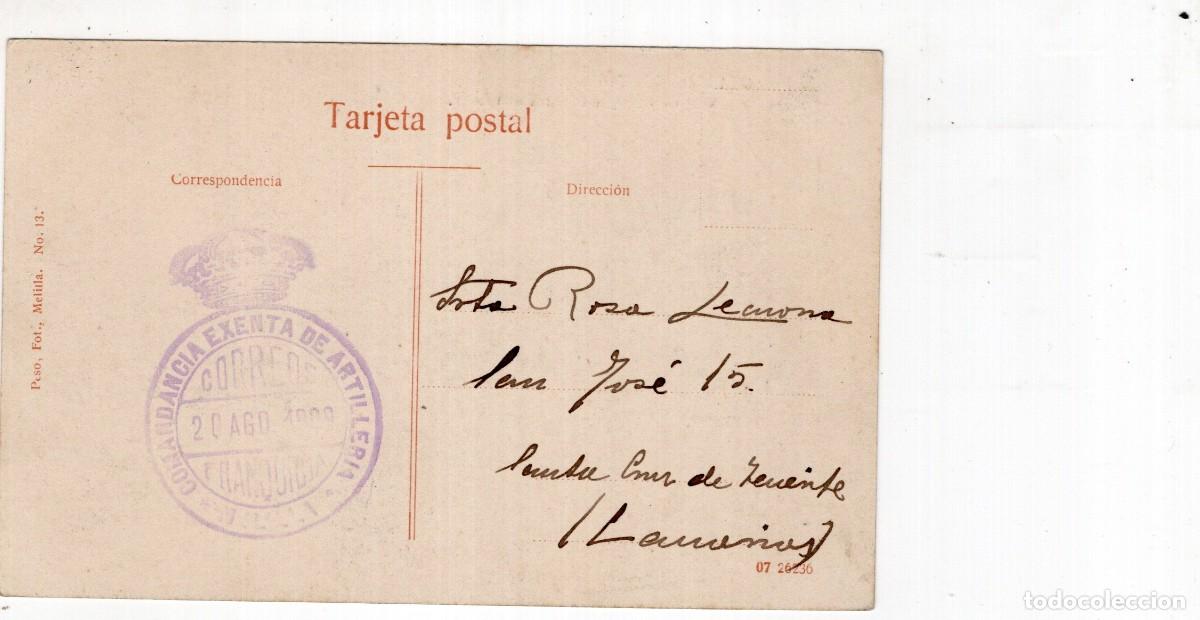 Tarjeta postal
Correspondencia
Dirección
Peso, Fot., Melilla. No. 13.
COMANDANCIA EXENTA DE ARTILLERIA
CORREOS
20 AGO 1909
FRANQUICIA
Srta Rosa
San José 15.
Santa Cruz de Tenerife
(Canarias)
07 26236
todocoleccion